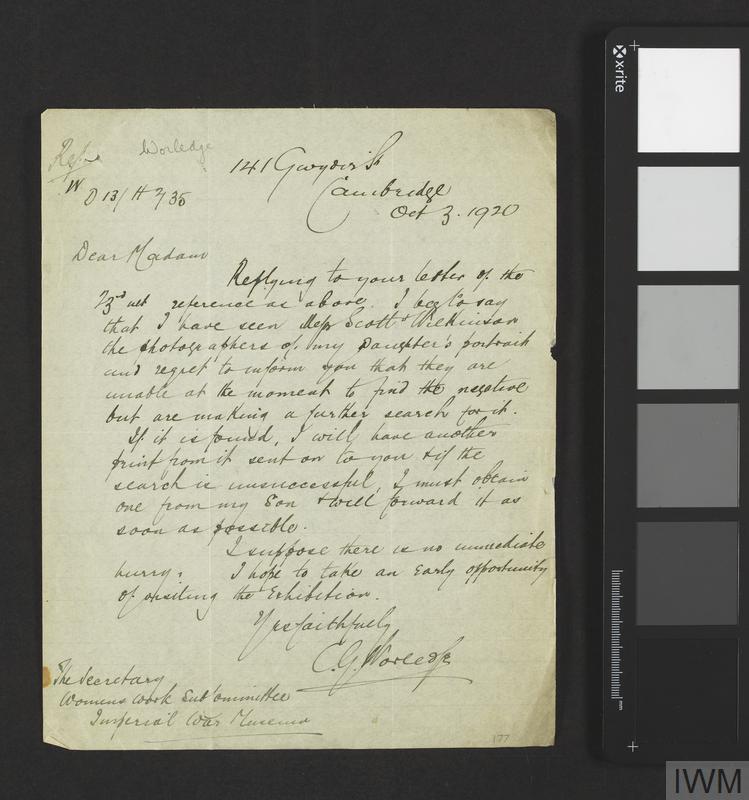 Ref
Worledge
W
D 13/ H 2/35
141 Gwydir St
Cambridge
Oct 3. 1920
Dear Madam
Replying to your letter of the
23rd ult reference as above. I beg to say
that I have seen Messrs Scott & Wilkinson
the photographers of my Daughter's portrait
and regret to inform you that they are
unable at the moment to find the negative
but are making a further search for it.
If it is found, I will have another
print from it sent on to you & if the
search is unsuccessful, I must obtain
one from my Son & will forward it as
soon as possible.
I suppose there is no immediate
hurry. I hope to take an early opportunity
of visiting the Exhibition.
Yrs faithfully
C. G. Worledge
The Secretary
Womens Work Sub Committee
Imperial War Museum
177
x-rite
mm
IWM